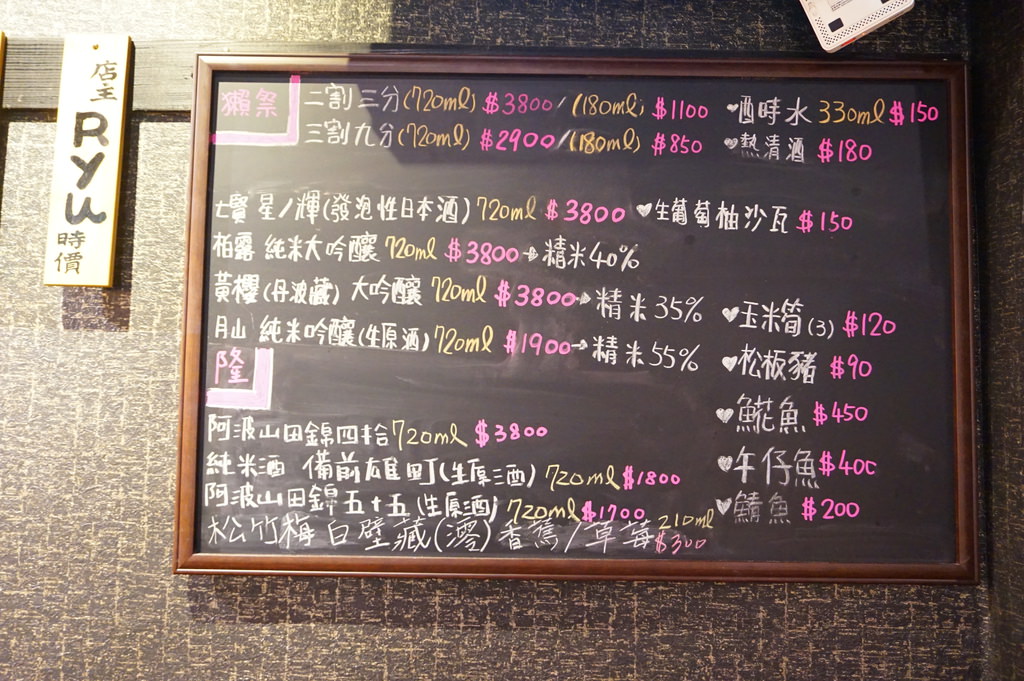 店主
Ryu
時價
獺祭
二割三分(720ml) $3800/(180ml) $1100
三割九分(720ml) $2900/(180ml) $850
七賢 星ノ輝(發泡性日本酒) 720ml $3800
柏露 純米大吟釀 720ml $3800→精米40%
黃櫻(丹波藏) 大吟釀 720ml $3800→精米35%
月山 純米吟釀(生原酒) 720ml $1900→精米55%
隆
阿波山田錦四拾720ml $3800
純米酒 備前雄町(生原酒) 720ml $1800
阿波山田錦五十五(生原酒) 720ml $1700
松竹梅白壁藏(澪)香蕉/草莓 210ml $300
♥酉時水 330ml $150
♥熱清酒 $180
♥生葡萄柚沙瓦 $150
♥玉米筍(3) $120
♥松板豬 $90
♥𩸽魚 $450
♥午仔魚 $400
♥鯖魚 $200